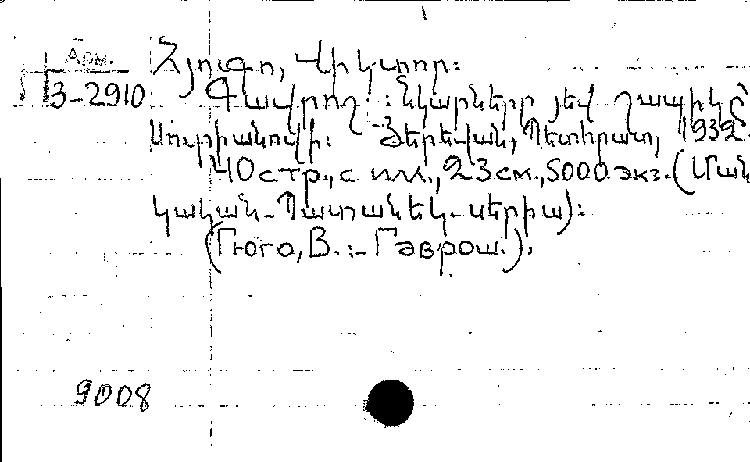 Арм.
3-2910
Հյուգո, Վիկտոր:
Գավրոշ: Նկարները յեվ շապիկը
Սուրիանովի: Յերեվան, Պետհրատ, 1932.
40 стр., с илл., 23 см., 5000 экз. (Ման
կական-Պատանեկ-սերիա):
(Гюго, В. :- Гаврош.).
9008